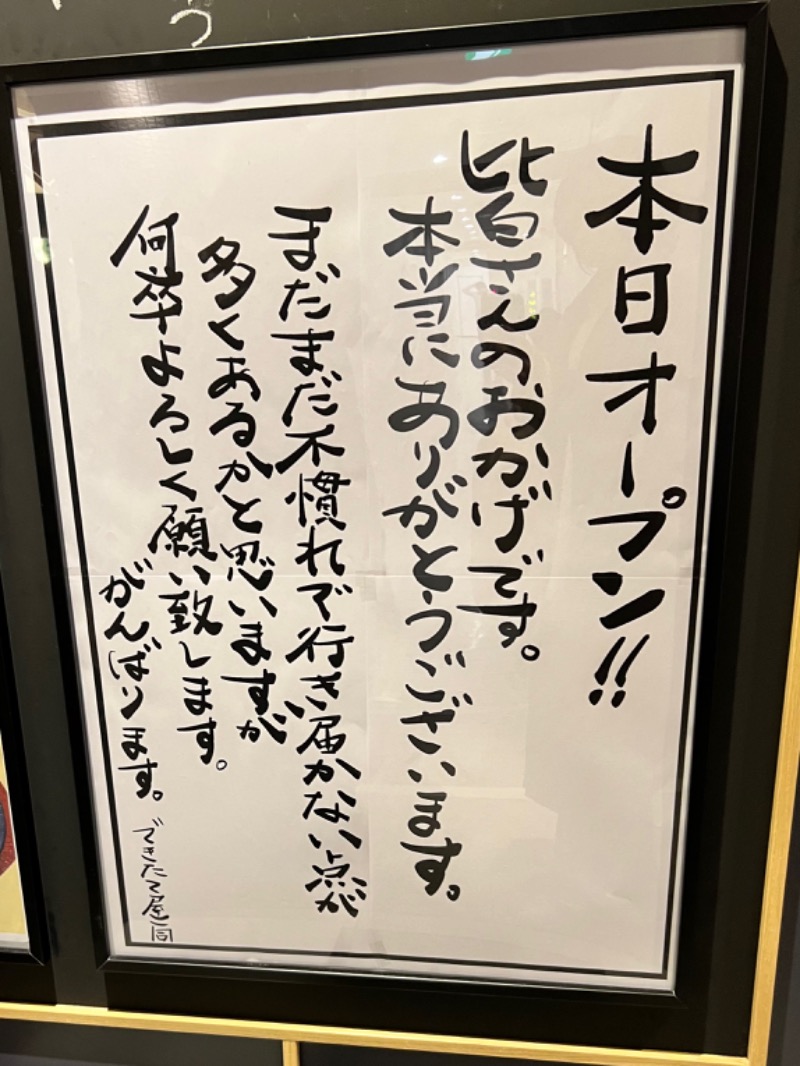 本日オープン!!
皆さんのおかげです。
本当にありがとうございます。
まだまだ不慣れで行き届かない点が
多くあるかと思いますが
何卒よろしく願い致します。
がんばります。
できたて屋一同